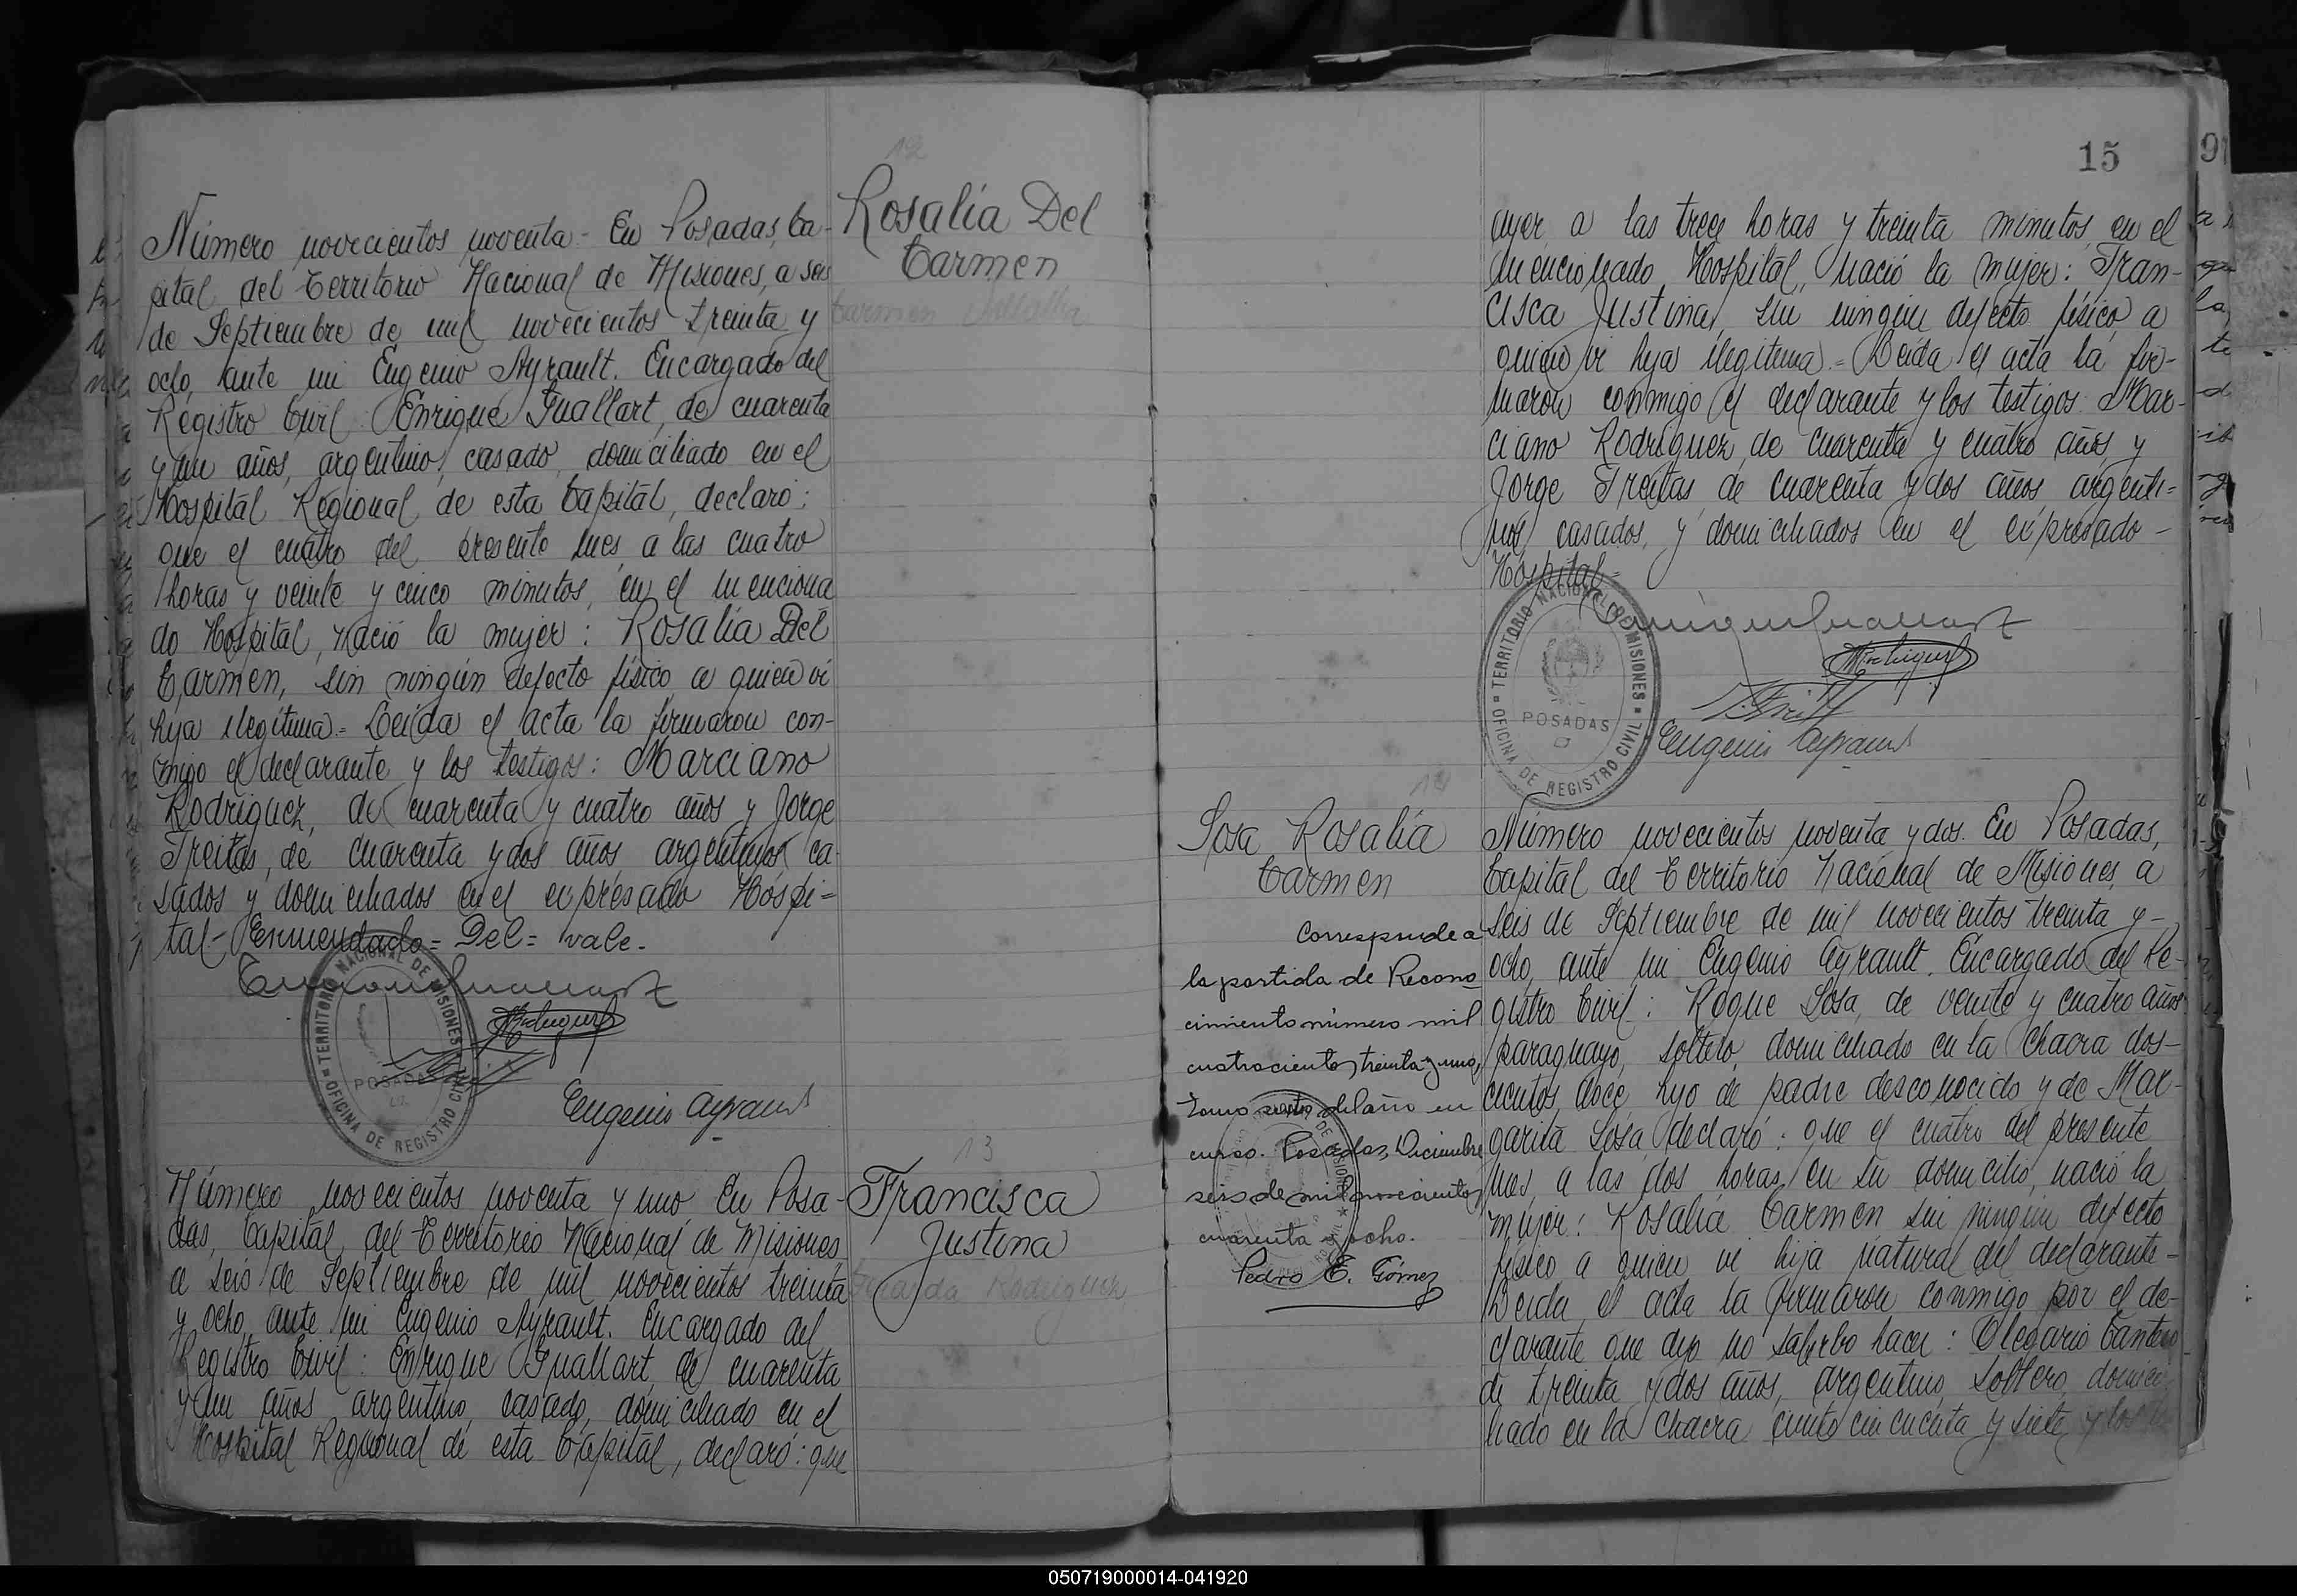 12
Rosalía Del
Carmen
Número novecientos noventa - En Posadas, Ca-
pital del Territorio Nacional de Misiones, a seis
de Septiembre de mil novecientos treinta y
ocho, ante mi Eugenio Ayrault. Encargado del
Registro Civil: Enrique Guallart, de cuarenta
y un años, argentino, casado, domiciliado en el
Hospital Regional de esta Capital, declaró:
que el cuatro del presente mes, a las cuatro
horas y veinte y cinco minutos, en el menciona
do Hospital, nació la mujer: Rosalía Del
Carmen, sin ningún defecto físico a quien vi
hija ilegítima = Leída el acta la firmaron con-
migo el declarante y los testigos: Marciano
Rodriguez, de cuarenta y cuatro años y Jorge
Freitas, de cuarenta y dos años, argentinos, ca-
sados y domiciliados en el expresado Hospi=
tal - Enmendado = Del = vale.
TERRITORIO NACIONAL DE MISIONES
POSADAS
OFICINA DE REGISTRO CIVIL
Eugenio Ayrault
13
Francisca
Justina
Rodriguez
Número novecientos noventa y uno En Posa-
das, Capital del Territorio Nacional de Misiones,
a seis de Septiembre de mil novecientos treinta
y ocho, ante mi Eugenio Ayrault. Encargado del
Registro Civil: Enrique Guallart, de cuarenta
y un años argentino, casado, domiciliado en el
Hospital Regional de esta Capital, declaró: que
15
ayer a las trece horas y treinta minutos, en el
mencionado Hospital, nació la mujer: Fran-
cisca Justina, sin ningún defecto físico a
quien vi hija ilegítima = Leída el acta la fir-
maron conmigo el declarante y los testigos: Mar-
ciano Rodriguez de cuarenta y cuatro años, y
Jorge Freitas, de cuarenta y dos años argenti=
nos, casados, y domiciliados en el expresado -
Hospital =
TERRITORIO NACIONAL DE MISIONES
POSADAS
OFICINA DE REGISTRO CIVIL
Eugenio Ayrault
14
Sosa Rosalía
Carmen
Corresponde a
la partida de Recono
cimiento número mil
cuatrocientos treinta y uno,
tomo sexto del año en
curso. Posadas, Diciembre
seis de mil novecientos
cuarenta y ocho.
Pedro E. Gómez
Número novecientos noventa y dos. En Posadas,
Capital del Territorio Nacional de Misiones, a
seis de Septiembre de mil novecientos treinta y -
ocho, ante mi Eugenio Ayrault. Encargado del Re-
gistro Civil: Roque Sosa, de veinte y cuatro años
paraguayo, soltero, domiciliado en la Chacra dos-
cientos doce, hijo de padre desconocido y de Mar-
garita Sosa, declaró: que el cuatro del presente
mes, a las dos horas, en su domicilio, nació la
mujer: Rosalía Carmen sin ningún defecto
físico a quien vi hija natural del declarante -
Leída el acta la firmaron conmigo por el de-
clarante que dijo no saberlo hacer: Olegario Cantero
de treinta y dos años, argentino, soltero, domici
liado en la Chacra ciento cincuenta y siete y los
050719000014-041920